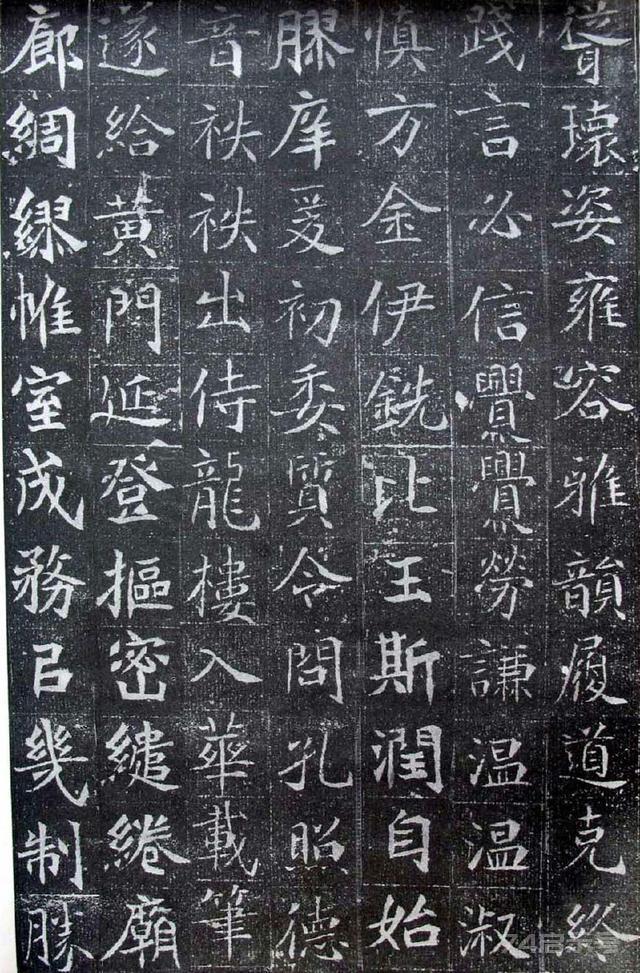 聳瓌姿雍容雅韻履道克終
踐言必信亹亹勞謙温温淑
慎方金伊銑比王斯潤自始
膠庠爰初委質令問孔照德
音秩秩出侍龍樓入華載筆
遂給黃門延登摳密繾綣廟
廊綢繆帷室成務㠯幾制勝